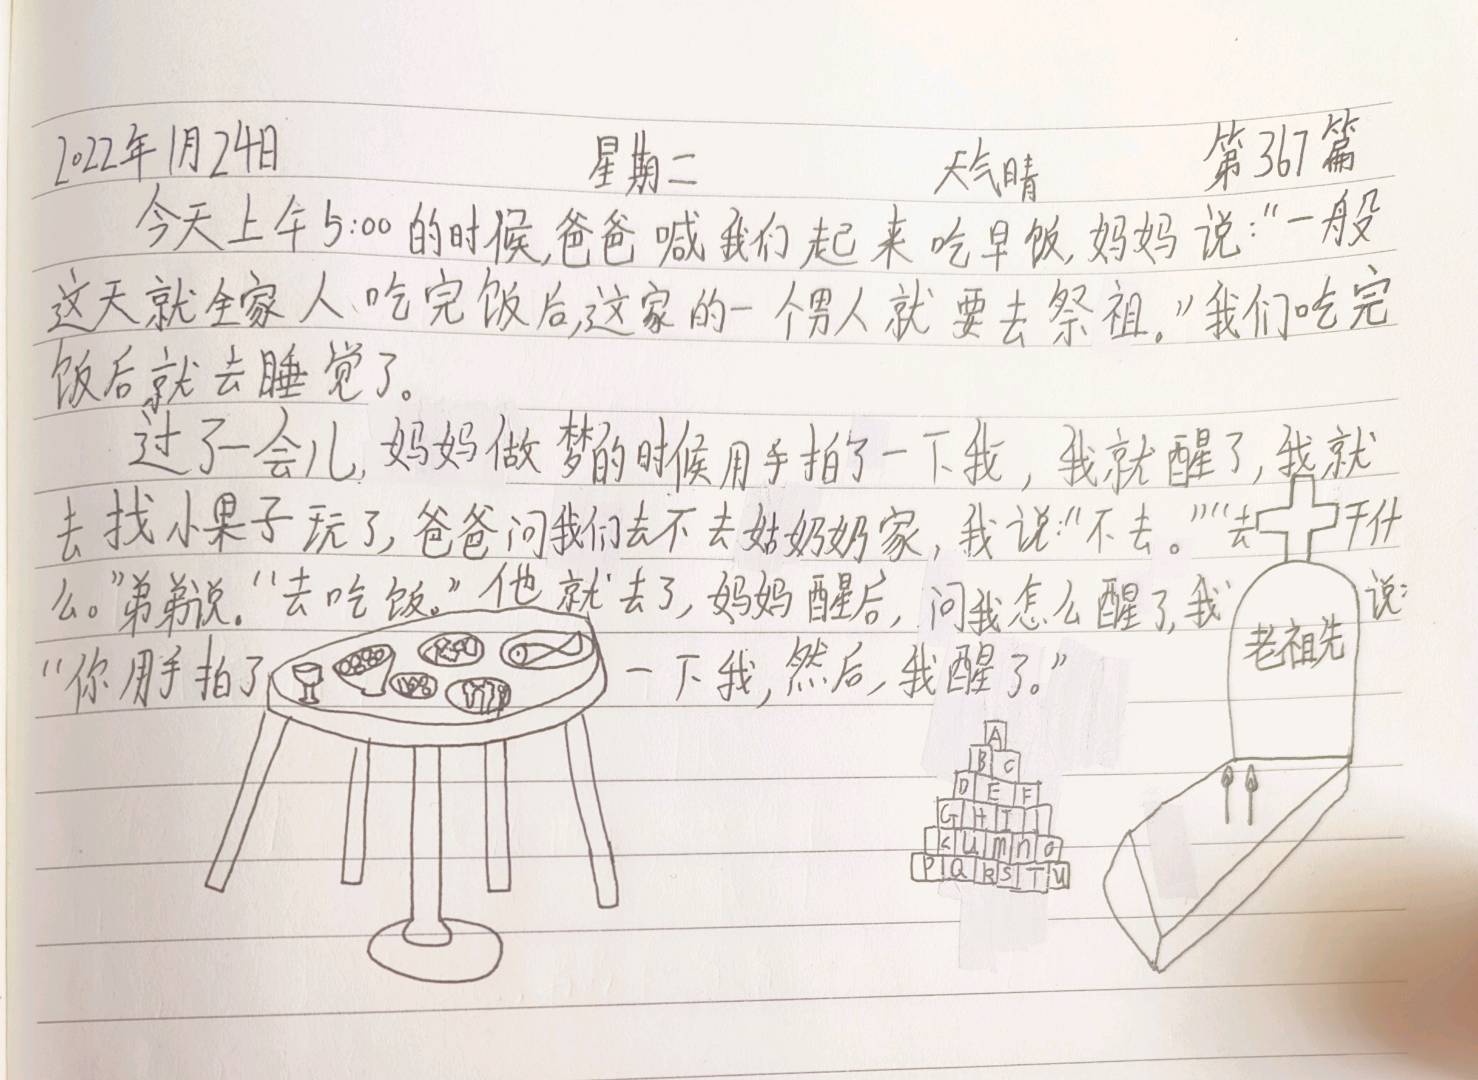 2022年1月24日 星期二 天气晴 第367篇
今天上午5:00的时候,爸爸喊我们起来吃早饭,妈妈说:“一般
这天就全家人、吃完饭后,这家的一个男人就要去祭祖。”我们吃完
饭后就去睡觉了。
过了一会儿,妈妈做梦的时候用手拍了一下我,我就醒了,我就
去找小果子玩了,爸爸问我们去不去姑奶奶家,我说:“不去。”“去干什
么。”弟弟说.“去吃饭。”他就去了,妈妈醒后,问我怎么醒了,我说:
“你用手拍了一下我,然后,我醒了。”
老祖先
A
B C
D E F
G H I J
K L M N O
P Q R S T U